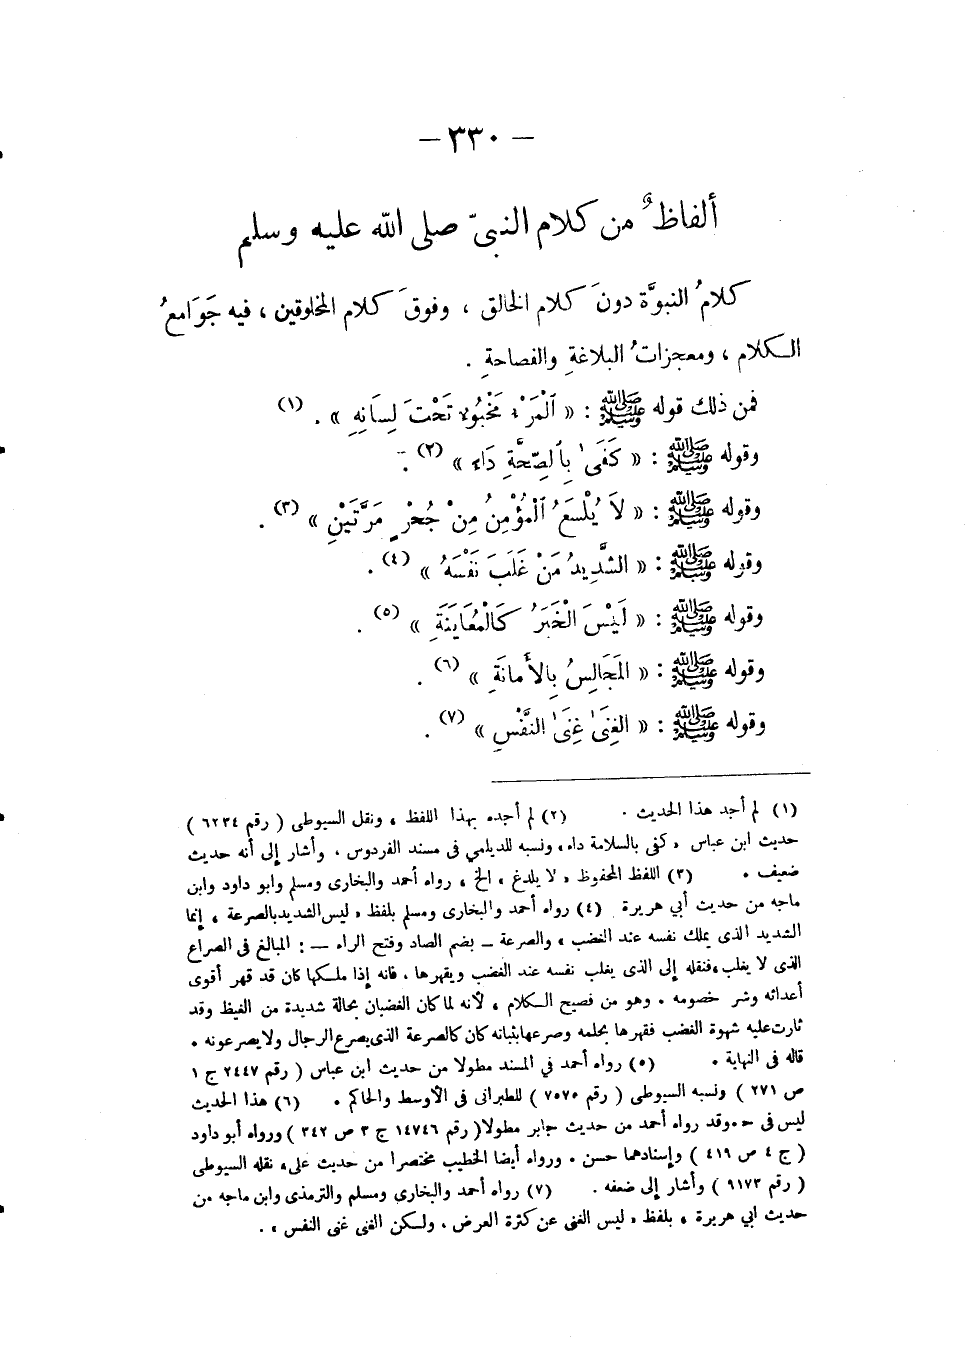 — ٣٣٠ —
ألفاظٌ من كلام النبىّ صلى الله عليه وسلم
كلامُ النبوَّة دونَ كلام الخالق ، وفوقَ كلام المخلوقين ، فيه جَوَامعُ
الكلام ، ومعجزاتُ البلاغةِ والفصاحةِ .
فمن ذلك قوله ﷺ : « اَلْمَرْءُ مَخْبُوءٌ تَحْتَ لِسَانِهِ » . (١)
وقوله ﷺ : « كَفَىٰ بِالصِّحَّةِ دَاءً » (٢) .
وقوله ﷺ : « لَا يُلْسَعُ الْمُؤْمِنُ مِنْ جُحْرٍ مَرَّتَيْنِ » (٣) .
وقوله ﷺ : « الشَّدِيدُ مَنْ غَلَبَ نَفْسَهُ » (٤) .
وقوله ﷺ : « لَيْسَ الْخَبَرُ كَالْمُعَايَنَةِ » (٥) .
وقوله ﷺ : « المَجَالِسُ بِالأَمانَةِ » (٦) .
وقوله ﷺ : « الغِنَىٰ غِنَىٰ النَّفْسِ » (٧) .
(١) لم أجد هذا الحديث . (٢) لم أجده بهذا اللفظ ، ونقل السيوطى ( رقم ٦٢٣٤ )
حديث ابن عباس « كفى بالسلامة داء » ونسبه للديلمى فى مسند الفردوس ، وأشار إلى أنه حديث
ضعيف . (٣) اللفظ المحفوظ « لا يلدغ » الخ ، رواه أحمد والبخارى ومسلم وابو داود وابن
ماجه من حديث أبي هريرة (٤) رواه أحمد والبخارى ومسلم بلفظ « ليس الشديد بالصرعة ، إنما
الشديد الذى يملك نفسه عند الغضب » والصرعة – بضم الصاد وفتح الراء – : المبالغ فى الصراع
الذى لا يغلب ، فنقله إلى الذى يغلب نفسه عند الغضب ويقهرها ، فانه إذا ملكها كان قد قهر أقوى
أعدائه وشر خصومه . وهو من فصيح الكلام ، لأنه لما كان الغضبان بحالة شديدة من الغيظ وقد
ثارت عليه شهوة الغضب فقهرها بحلمه وصرعها بثباته كان كالصرعة الذى يصرع الرجال ولا يصرعونه .
قاله فى النهاية . (٥) رواه أحمد في المسند مطولا من حديث ابن عباس ( رقم ٢٤٤٧ ج ١
ص ٢٧١ ) ونسبه السيوطى ( رقم ٧٥٧٥ ) للطبرانى فى الأوسط والحاكم . (٦) هذا الحديث
ليس فى ح . وقد رواه أحمد من حديث جابر مطولا ( رقم ١٤٧٤٦ ج ٣ ص ٣٤٢ ) ورواه أبو داود
( ج ٤ ص ٤١٩ ) وإسنادهما حسن . ورواه أيضا الخطيب مختصرا من حديث على ، نقله السيوطى
( رقم ٩١٧٣ ) وأشار إلى ضعفه . (٧) رواه أحمد والبخارى ومسلم والترمذى وابن ماجه من
حديث ابي هريرة ، بلفظ « ليس الغنى عن كثرة العرض ، ولكن الغنى غنى النفس » .